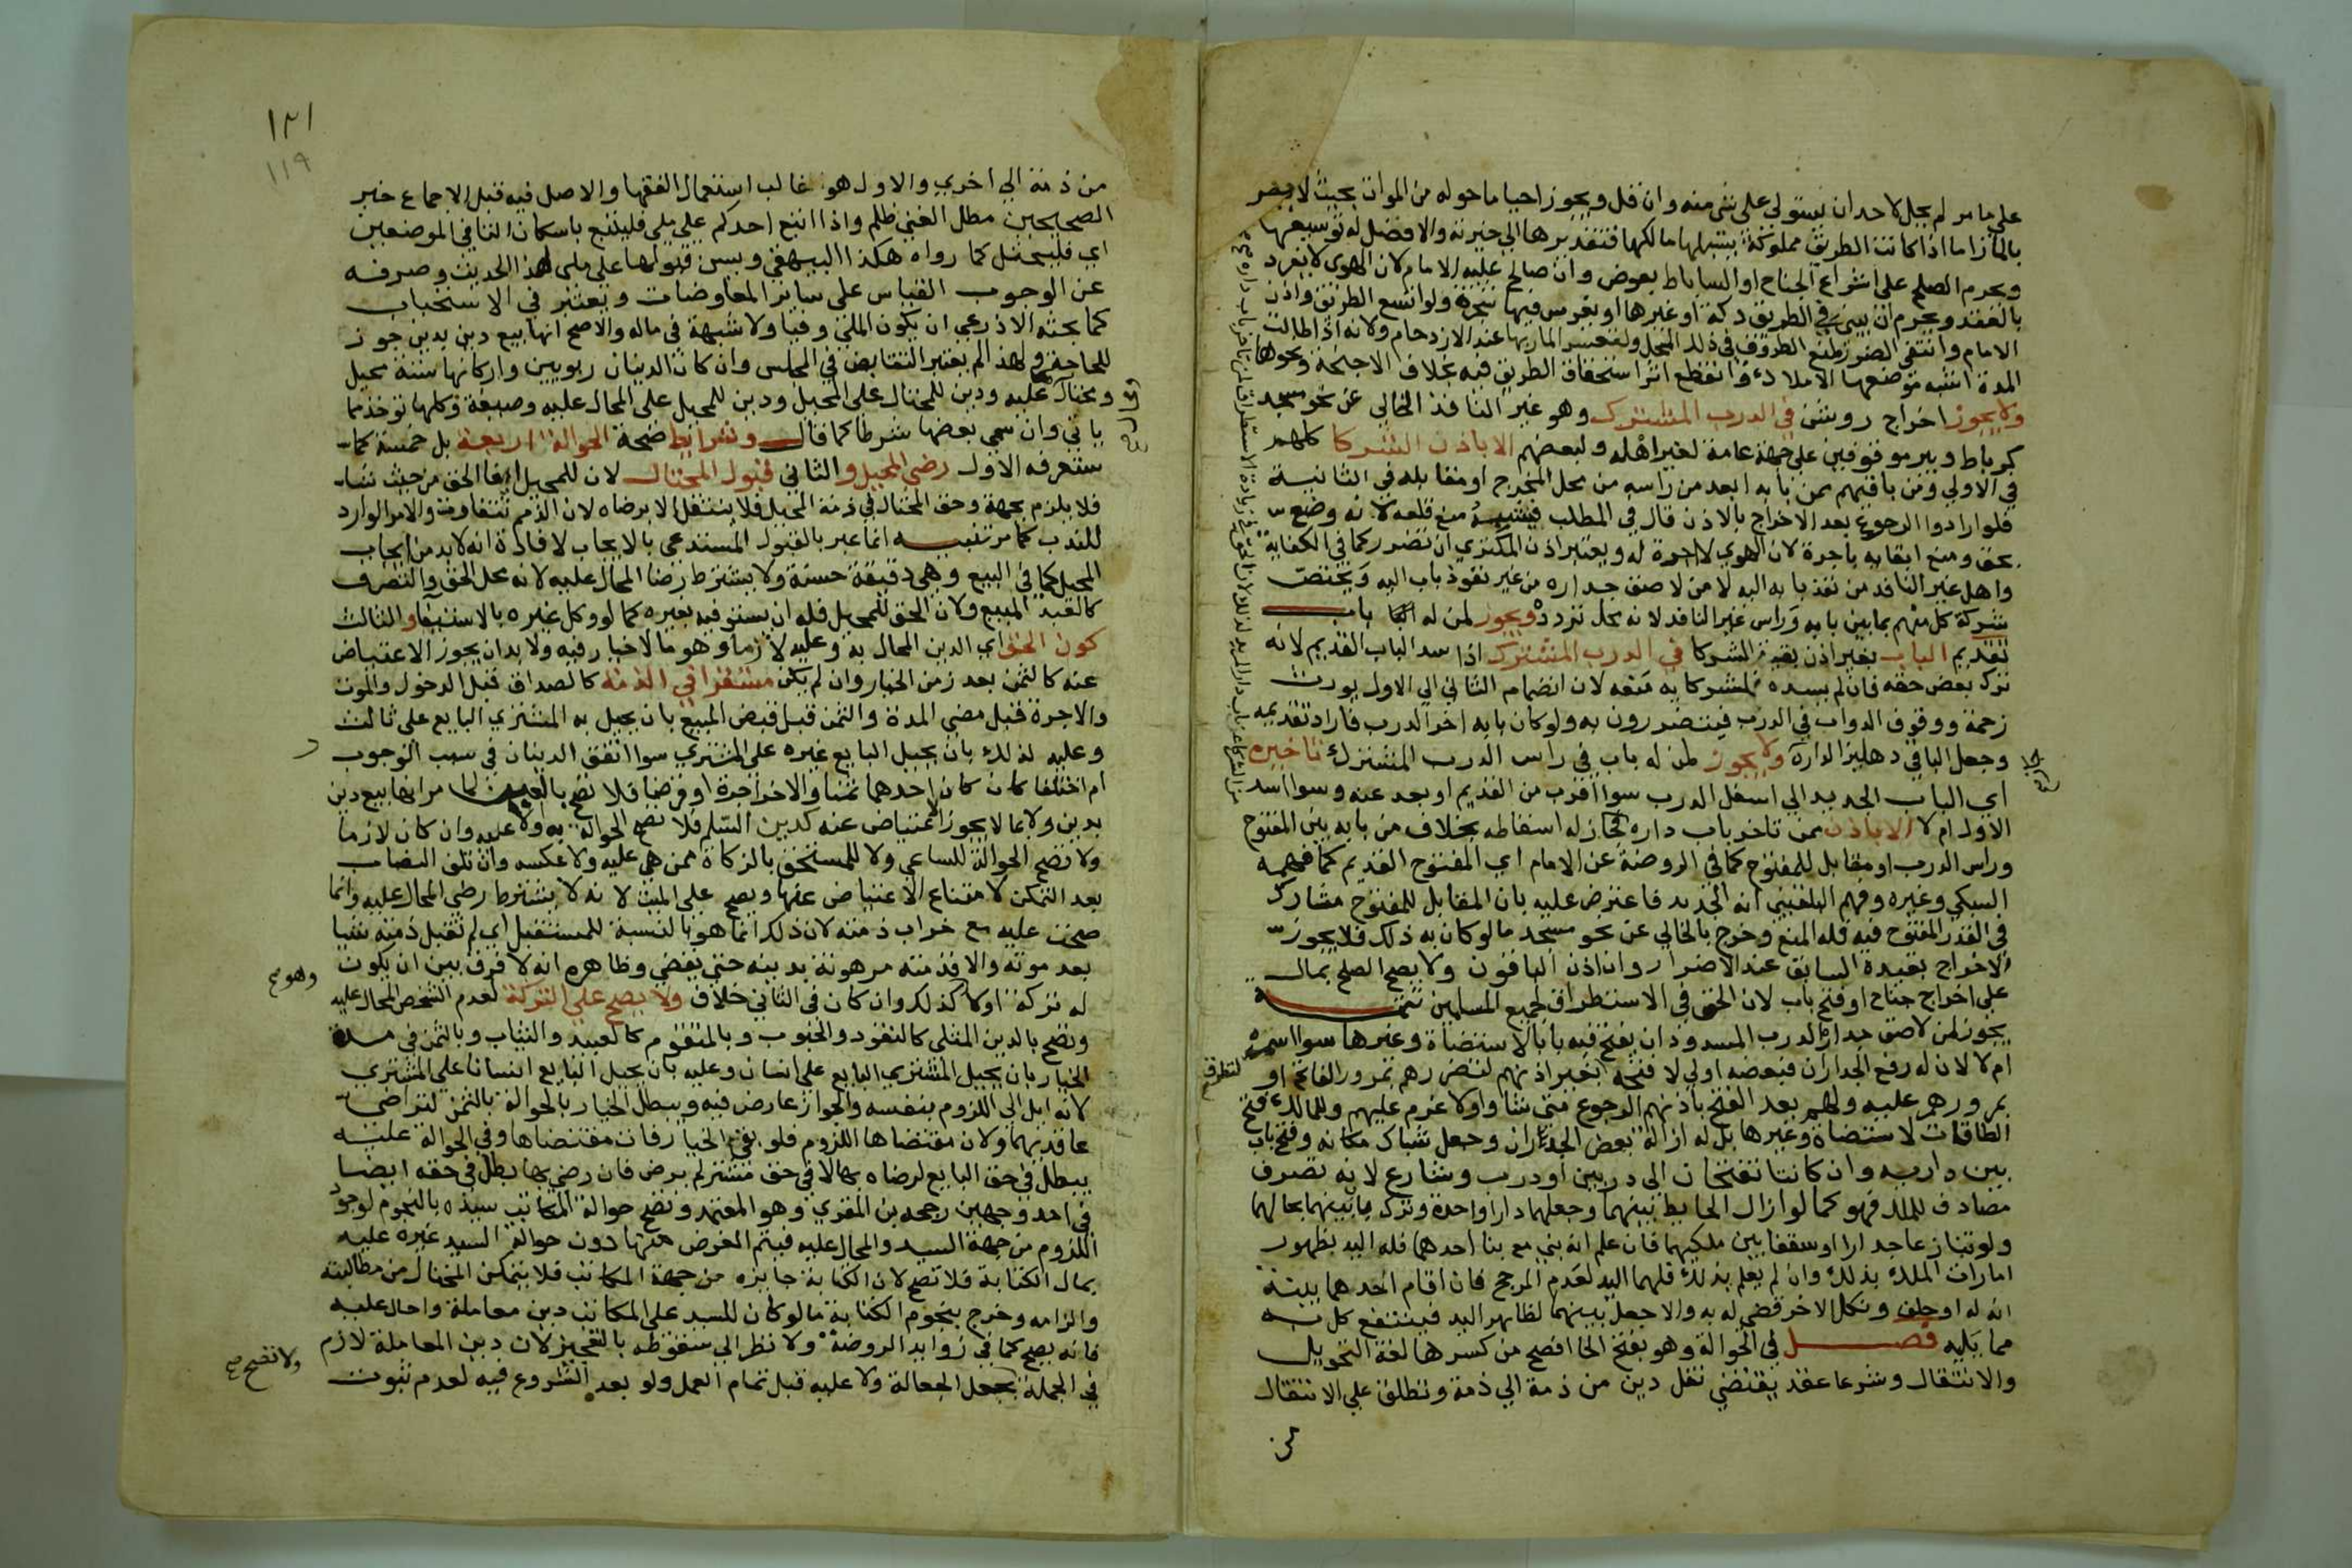 على ما مر لم يحل لاحد ان يستولى على شى منه وان قل ويجوز احيا ما حوله من الموات بحيث لا يضر
بالمار اما اذا كانت الطريق مملوكة يسبلها مالكها فتقديرها الي خيرته والافضل له توسيعها
ويحرم الصلح على اشراع الجناح او الساباط بعوض وان صالح عليه الامام لان الهوى لا يفرد
بالعقد ويحرم ان يبنى في الطريق دكة او غيرها او يغرس فيها شجرة ولو اتسع الطريق واذن
الامام وانتفى الضرر لمنع الطروق في ذلك المحل ولتعسر المار بها عند الازدحام ولانه اذا طالت
المدة اشبه موضعها الاملاك وانقطع اثر استحقاق الطريق فيه بخلاف الاجنحة ونحوها
ولا يجوز اخراج روشن في الدرب المشترك وهو غير النافذ الخالي عن نحو مسجد
كرباط وبير موقوفين على جهة عامة لغير اهله ولبعضهم الا باذن الشركا كلهم
في الاولي ومن باقيهم ممن بابه ابعد من راسه من محل المخرج او مقابله في الثانية
فلو ارادوا الرجوع بعد الاخراج بالاذن قال في المطلب فيشبه منع قلعه لانه وضع
بحق ومنع ابقايه باجرة لان الهوي لا اجرة له ويعتبر اذن المكتري ان تضرر كما في الكفاية
واهل غير النافذ من نفذ بابه اليه لا من لاصق جداره من غير نفوذ باب اليه ويختص
شركة كل منهم بما بين بابه وراس غير النافذ لانه محل تردده ويجوز لمن له باب
تقديم الباب بغير اذن بقية الشركا في الدرب المشترك اذا سد الباب القديم لانه
ترك بعض حقه فان لم يسده فلشركايه منعه لان انضمام الثاني الي الاول يورث
زحمة ووقوف الدواب في الدرب فيتضررون به ولو كان بابه اخر الدرب فاراد تقديمه
وجعل الباقي دهليزا لداره ولا يجوز لمن له باب في راس الدرب المشترك تاخيره
اي الباب الجديد الي اسفل الدرب سوا اقرب من القديم او بعد عنه وسوا اسد
الاول ام لا الا باذن ممن تاخر باب داره فجاز له اسقاطه بخلاف من بابه بين المفتوح
وراس الدرب او مقابل للمفتوح كما في الروضة عن الامام اي المفتوح القديم كما فهمه
السبكي وغيره وفهم البلقيني انه الجديد فاعترض عليه بان المقابل للمفتوح مشارك
في القدر المفتوح فيه فله المنع وخرج بالخالي عن نحو مسجد ما لو كان به ذلك فلا يجوز
الاخراج بقيده السابق عند الاضرار وان اذن الباقون ولا يصح الصلح بمال
على اخراج جناح او فتح باب لان الحق في الاستطراق لجميع المسلمين تتمة
يجوز لمن لاصق جداره الدرب المسدود ان يفتح فيه بابا لاستضاة وغيرها سوا اسمره
ام لا لان له رفع الجدار فبعضه اولي لا فتحه بغير اذنهم لتضررهم بمرور الفاتح او
بمرورهم عليه ولهم بعد الفتح باذنهم الرجوع متى شاوا ولا غرم عليهم وللمالك فتح
الطاقات لاستضاة وغيرها بل له ازالة بعض الجدار وجعل شباك مكانه وفتح باب
بين داريه وان كانتا تفتحان الى دربين او درب وشارع لانه تصرف
مصادف للملك فهو كما لو ازال الحايط بينهما وجعلهما دارا واحدة وترك بابيهما بحالهما
ولو تنازعا جدارا او سقفا بين ملكيهما فان علم انه بني مع بنا احدهما فله اليد بظهور
امارات الملك بذلك وان لم يعلم بذلك فلهما اليد لعدم المرجح فان اقام احدهما بينة
انه له او حلف ونكل الاخر قضى له به والا جعل بينهما لظاهر اليد فينتفع كل به
مما يليه فصل في الحوالة وهو بفتح الحا افصح من كسرها لغة التحويل
والانتقال وشرعا عقد يقتضي نقل دين من ذمة الي ذمة وتطلق على الانتقال
من
١٢١
١١٩
من ذمة الى اخرى والاول هو غالب استعمال الفقها والاصل فيه قبل الاجماع خبر
الصحيحين مطل الغني ظلم واذا اتبع احدكم على ملى فليتبع باسكان التا في الموضعين
اي فليحتل كما رواه هكذا البيهقي ويسن قبولها على ملى لهذا الحديث وصرفه
عن الوجوب القياس على ساير المعاوضات ويعتبر في الاستحباب
كما بحثه الاذرعي ان يكون الملي وفيا ولا شبهة في ماله والاصح انها بيع دين بدين جوز
للحاجة ولهذا لم يعتبر التقابض في المجلس وان كان الدينان ربويين واركانها ستة محيل
ومحتال ومحال عليه ودين للمحتال على المحيل ودين للمحيل على المحال عليه وصيغة وكلها توخذ مما
ياتي وان سمي بعضها شرطا كما قال وشرايط صحة الحوالة اربعة بل خمسة كما
ستعرفه الاول رضى المحيل والثاني قبول المحتال لان للمحيل ايفا الحق من حيث شا
فلا يلزم بجهة وحق المحتال في ذمة المحيل فلا ينتقل الا برضاه لان الذمم تتفاوت والامر الوارد
للندب كما مر تنبيه انما عبر بالقبول المستدعي بالايجاب لافادة انه لابد من ايجاب
المحيل كما في البيع وهي دقيقة حسنة ولا يشترط رضا المحال عليه لانه محل الحق والتصرف
كالعبد المبيع ولان الحق للمحيل فله ان يستوفيه بغيره كما لو وكل غيره بالاستيفا والثالث
كون الحق اي الدين المحال به وعليه لازما وهو ما لا خيار فيه ولابد ان يجوز الاعتياض
عنه كالثمن بعد زمن الخيار وان لم يكن مستقرا في الذمة كالصداق قبل الدخول والموت
والاجرة قبل مضى المدة والثمن قبل قبض المبيع بان يحيل به المشتري البايع على ثالث
وعليه لذلك بان يحيل البايع غيره على المشتري سوا اتفق الدينان في سبب الوجوب
ام اختلفا كان كان احدهما ثمنا والاخر اجرة او قرضا فلا تصح بالعين لما مر انها بيع دين
بدين ولا بما لا يجوز الاعتياض عنه كدين السلم فلا تصح الحوالة به ولا عليه وان كان لازما
ولا تصح الحوالة للساعي ولا للمستحق بالزكاة ممن هي عليه ولا عكسه وان تلف النصاب
بعد التمكن لامتناع الاعتياض عنها ويصح على الميت لانه لا يشترط رضى المحال عليه وانما
صحت عليه مع خراب ذمته لان ذلك انما هو بالنسبة للمستقبل اي لم تقبل ذمته شيا
بعد موته والا فذمته مرهونة بدينه حتى يقضي وظاهره انه لا فرق بين ان يكون
له تركة اولا كذلك وان كان في الثاني خلاف ولا يصح على التركة لعدم الشخص المحال عليه
وتصح بالدين المثلي كالنقود والحبوب وبالمتقوم كالعبيد والثياب وبالثمن في مدة
الخيار بان يحيل المشتري البايع على انسان وعليه بان يحيل البايع انسانا على المشتري
لانه ايل الى اللزوم بنفسه والجواز عارض فيه ويبطل الخيار بالحوالة بالثمن لتراضي
عاقديهما ولان مقتضاها اللزوم فلو بقى الخيار فات مقتضاها وفي الحوالة عليه
يبطل في حق البايع لرضاه بها لا في حق مشتر لم يرض فان رضي بها بطل في حقه ايضا
في احد وجهين رجحه بن المقري وهو المعتمد وتصح حوالة المكاتب سيده بالنجوم لوجود
اللزوم من جهة السيد والمحال عليه فيتم الغرض منها دون حوالة السيد غيره عليه
بمال الكتابة فلا تصح لان الكتابة جايزه من جهة المكاتب فلا يتمكن المحتال من مطالبته
والزامه وخرج بنجوم الكتابة ما لو كان للسيد على المكاتب دين معاملة واحال عليه
فانه يصح كما في زوايد الروضة ولا نظر الى سقوطه بالتعجيز لان دين المعاملة لازم
في الجملة بجعل الجعالة ولا عليه قبل تمام العمل ولو بعد الشروع فيه لعدم ثبوت
وهو
ولا تصح صح